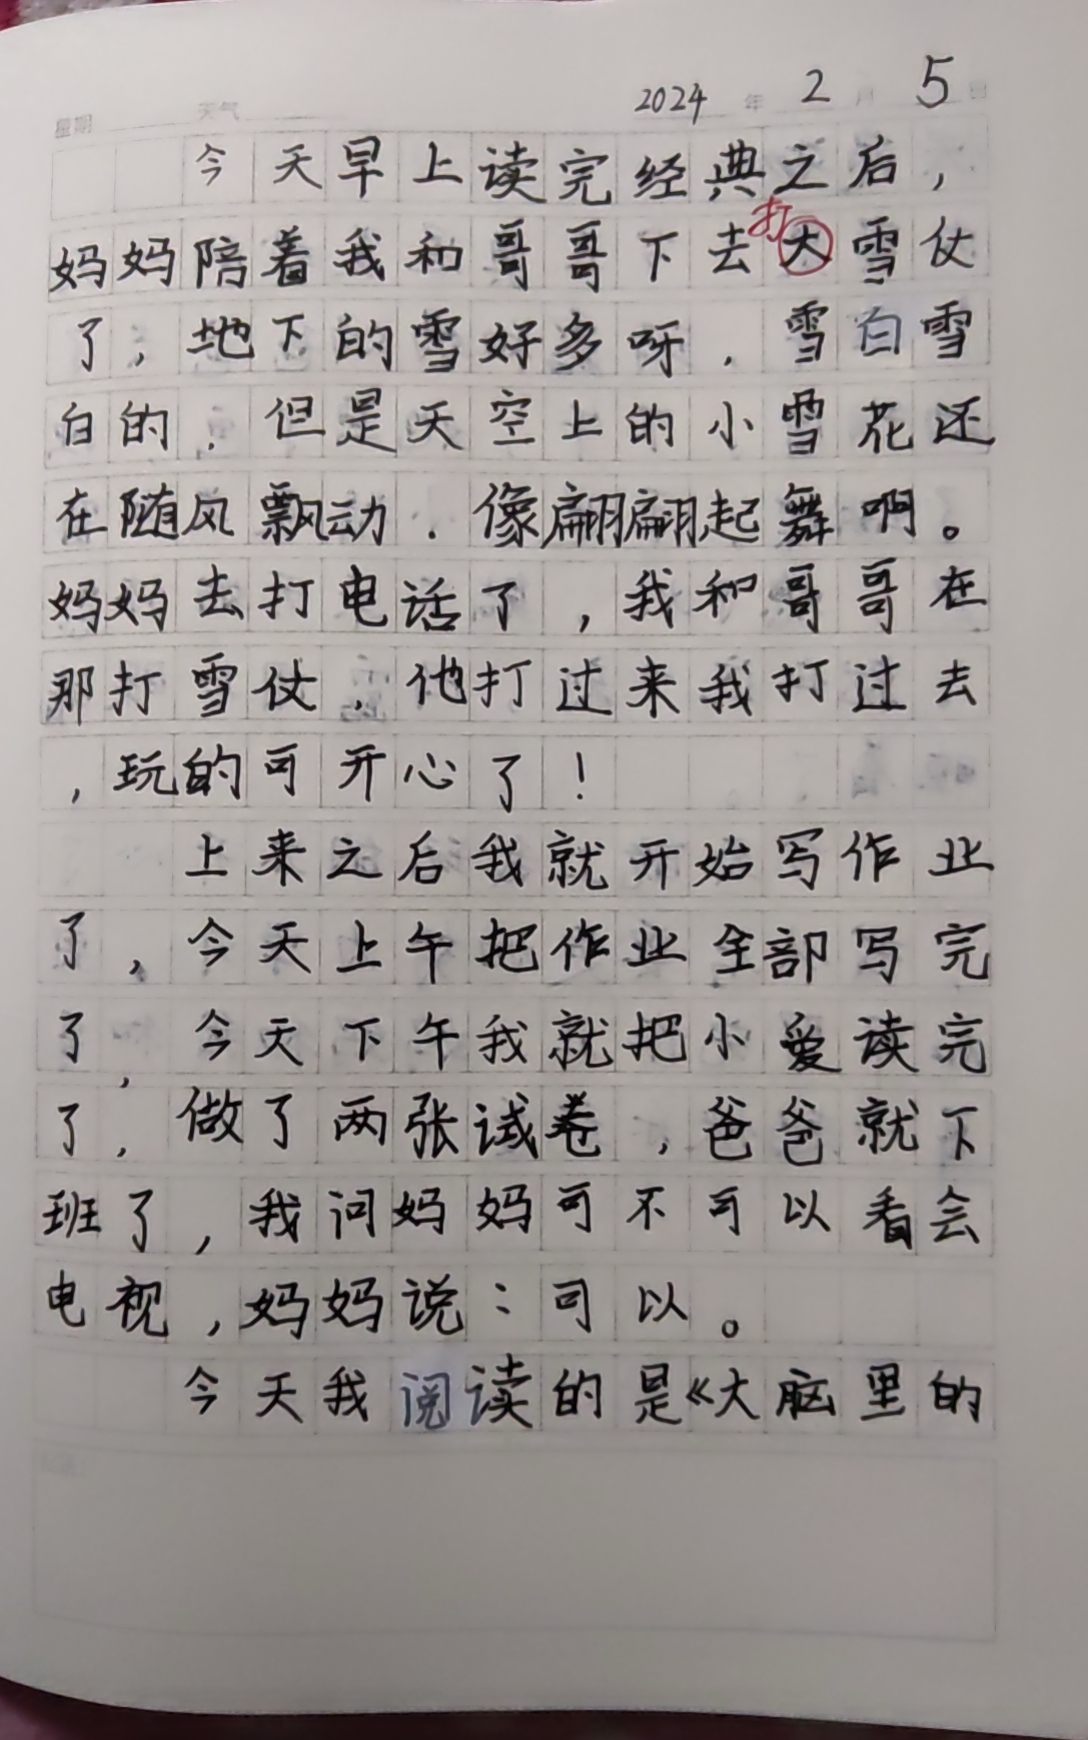 星期 天气 2024年2月5日
今天早上读完经典之后，
打
妈妈陪着我和哥哥下去大雪仗
了，地下的雪好多呀，雪白雪
白的，但是天空上的小雪花还
在随风飘动．像翩翩起舞啊。
妈妈去打电话了，我和哥哥在
那打雪仗，他打过来我打过去
，玩的可开心了！
上来之后我就开始写作业
了，今天上午把作业全部写完
了，今天下午我就把小爱读完
了，做了两张试卷，爸爸就下
班了，我问妈妈可不可以看会
电视，妈妈说：可以。
今天我阅读的是《大脑里的